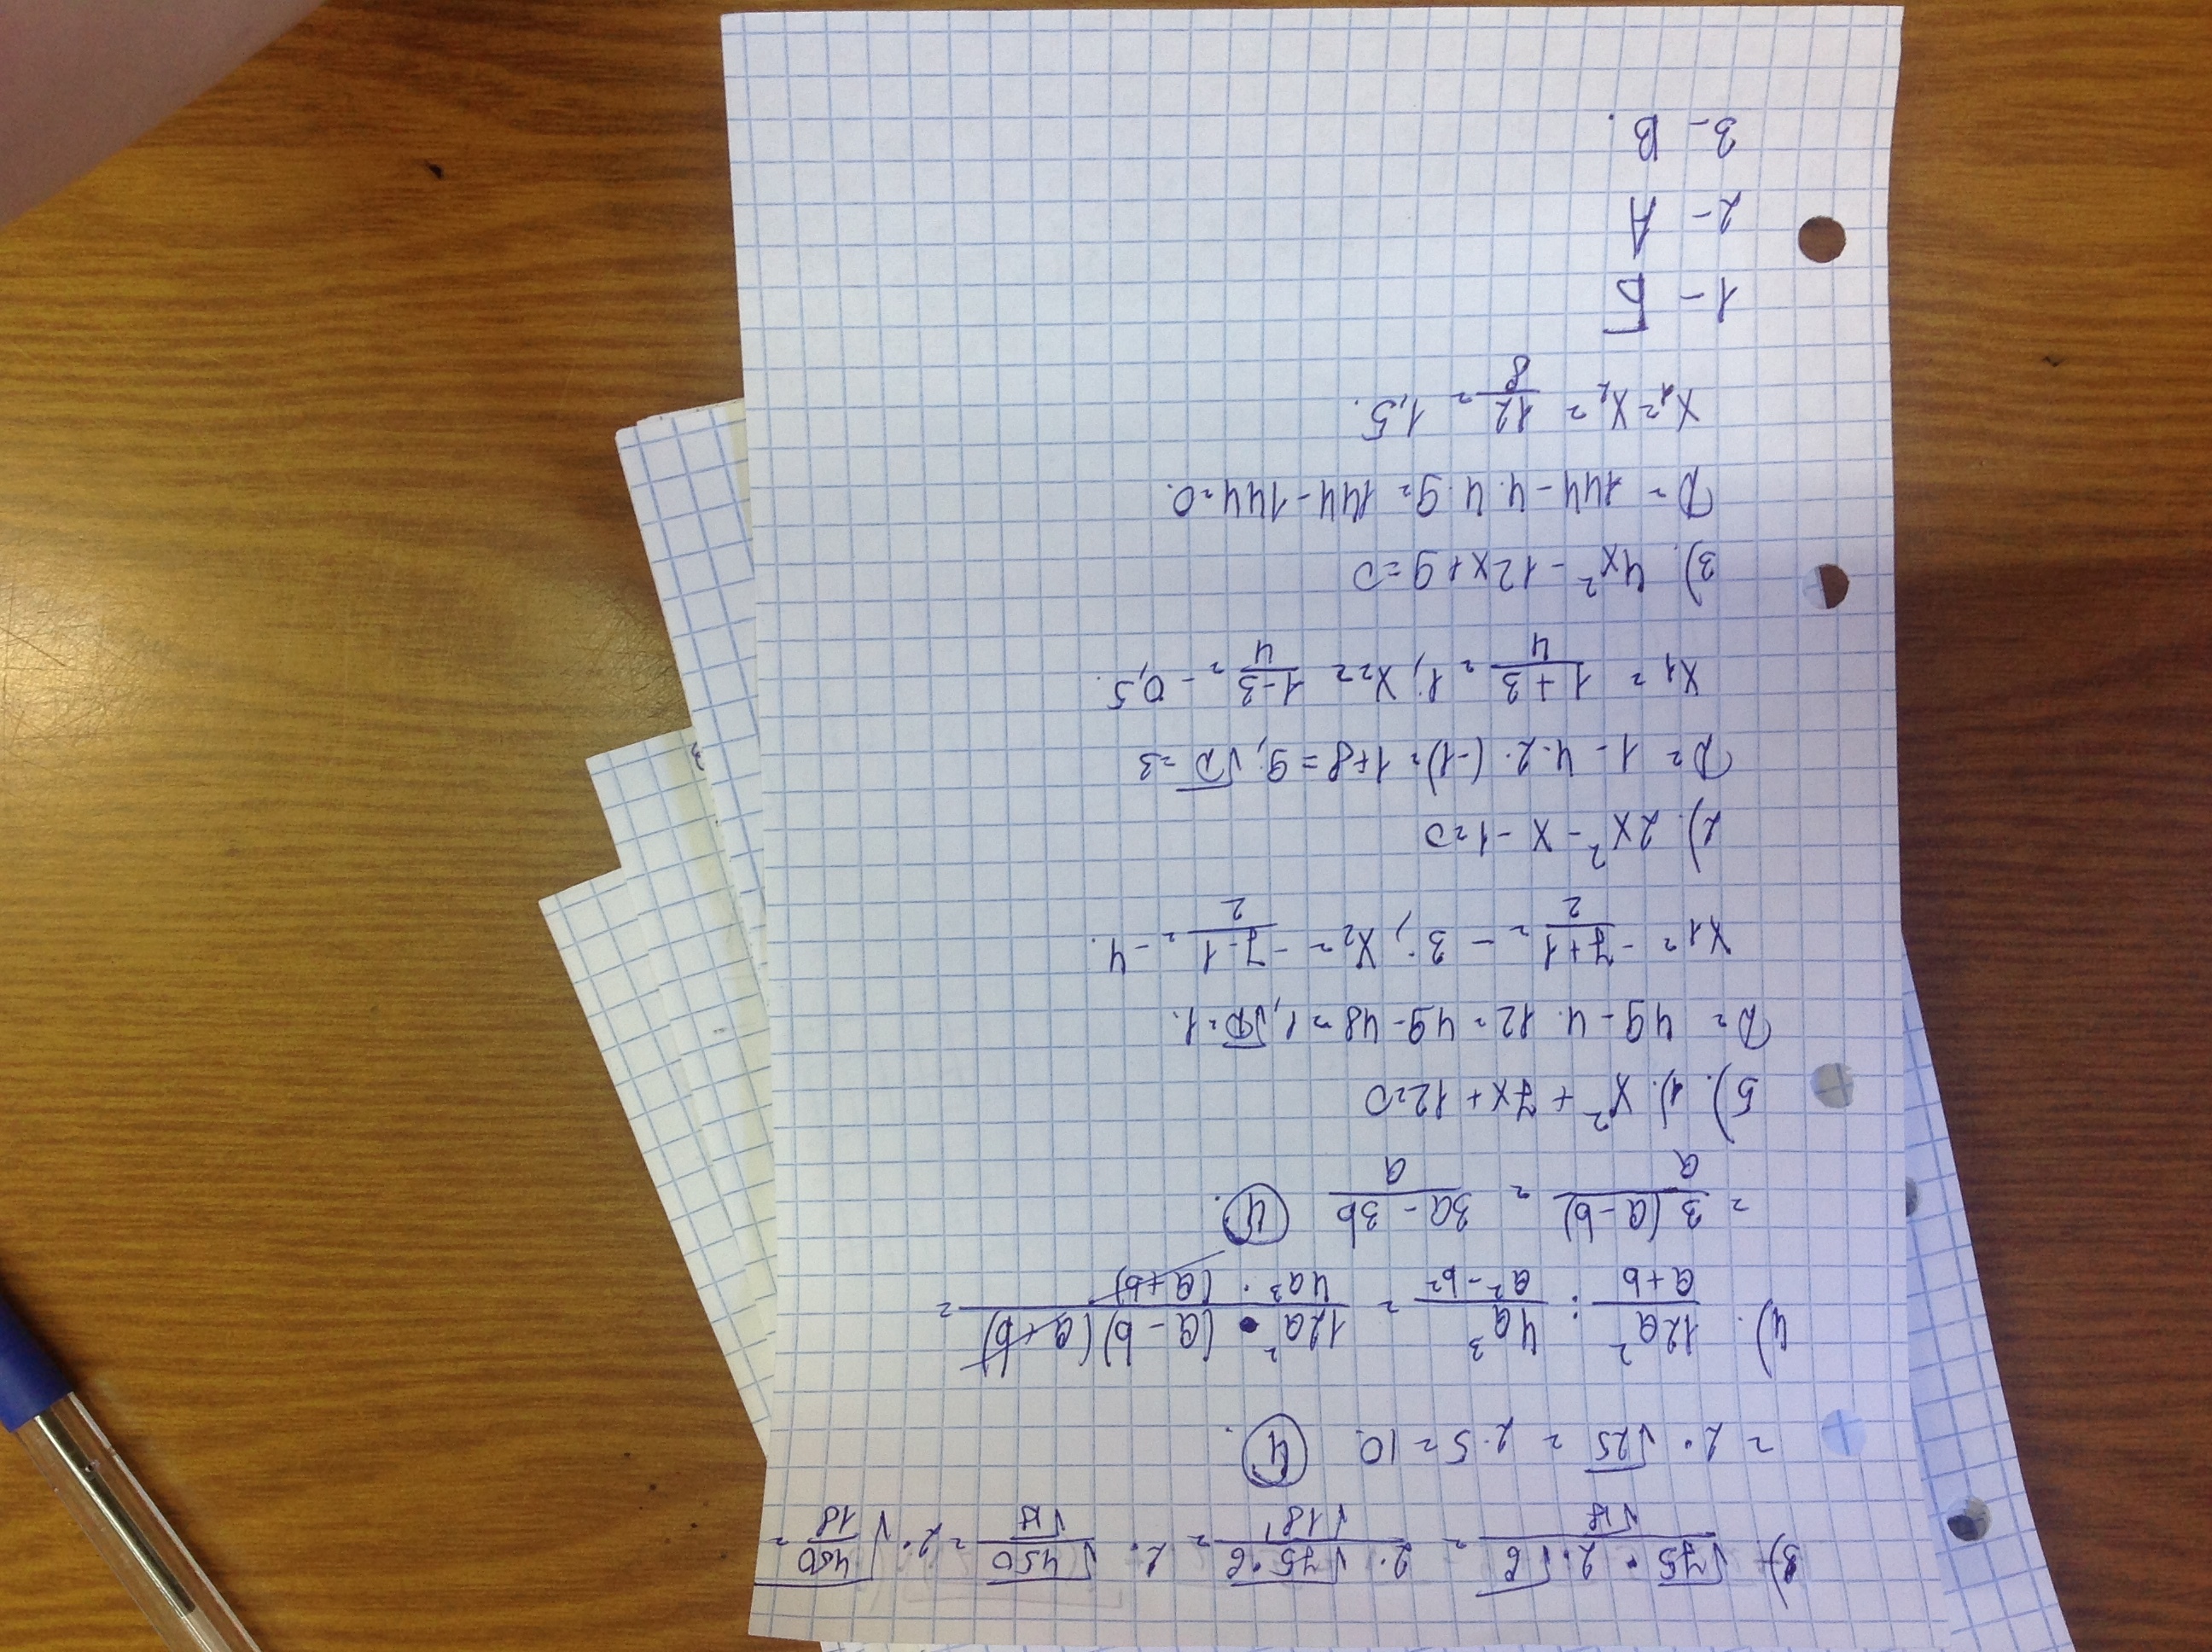 3) √75 · 2·√6 / √18 = 2·√75·6 / √18 = 2· √450 / √18 = 2· √450/18 =
= 2· √25 = 2·5=10. 4.
4). 12a² / a+b : 4a³ / a²-b² = 12a² · (a-b)(a+b) / 4a³ · (a+b) =
= 3(a-b) / a = 3a-3b / a 4.
5). 1). x² + 7x + 12=0
D= 49-4·12= 49-48=1, √D=1.
x1= -7+1 / 2 = -3; x2= -7-1 / 2 = -4.
2). 2x² - x -1=0
D= 1-4·2·(-1)= 1+8=9, √D=3
x1= 1+3 / 4 = 1; x2= 1-3 / 4 = -0,5.
3). 4x² - 12x+9=0
D= 144-4·4·9= 144-144=0.
x1=x2= 12 / 8 = 1,5.
1- Б
2- А
3- В.